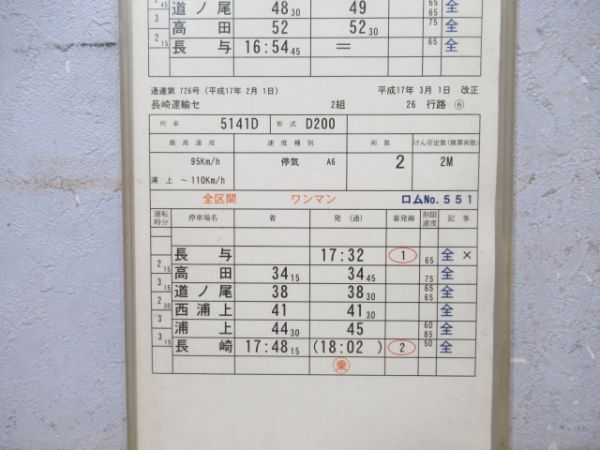 道ノ尾 48 30 49 65 65 全
3 高田 52 52 30 75 全
2 15 長与 16:54 45 = 65 全
通達第 726号 (平成17年 2月 1日) 平成17年 3月 1日 改正
長崎運輸セ 2組 26 行路 ⑥
列車 5141D 形式 D200
最高速度 速度種別 両数 けん引定数(換算両数)
95Km/h 停気 A6 2 2M
浦上 ~110Km/h
全区間 ワンマン ロムNo.551
運転時分 停車場名 着 発(通) 着発線 制限速度 記事
長与 17:32 1 65 全 ×
2 15 高田 34 15 34 45 75 全
3 15 道ノ尾 38 38 30 65 65 全
2 30 西浦上 41 41 30 全
3 浦上 44 30 45 60 85 全
3 15 長崎 17:48 15 (18:02 ) 2 50 全
乗